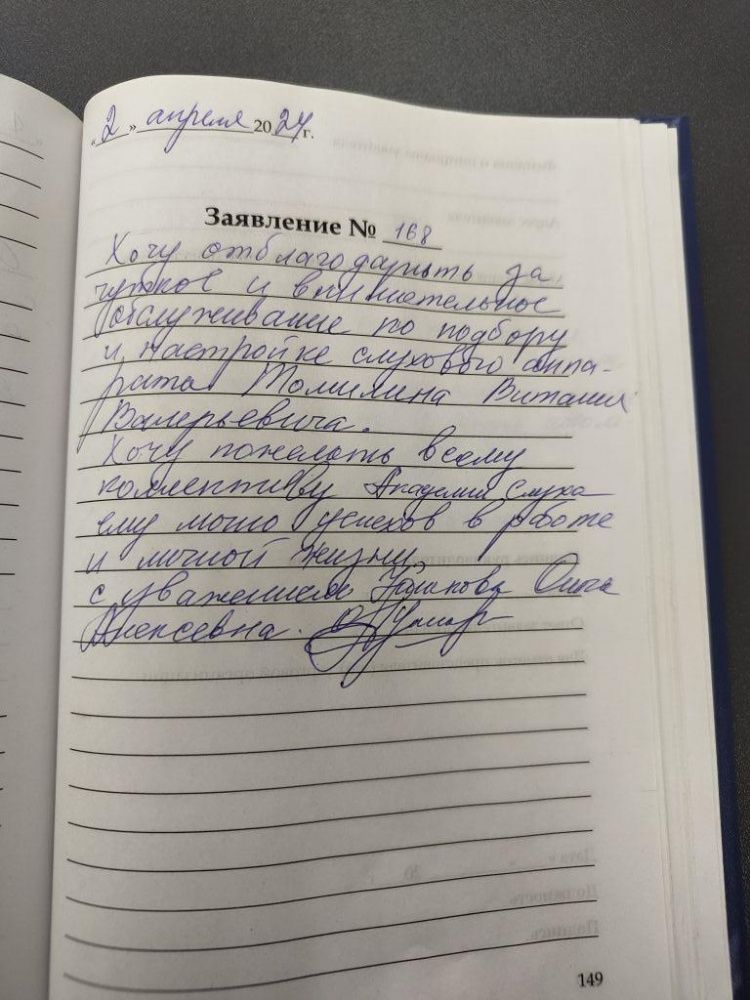 «2» апреля 2024 г.
Заявление № 168
Хочу отблагодарить за
чуткое и внимательное
обслуживание по подбору
и настройке слухового аппа-
рата Томилина Виталия
Валерьевича.
Хочу пожелать всему
коллективу Академии Слуха
успехов в работе
и личной жизни.
С уважением Ольга
Алексеевна.
149